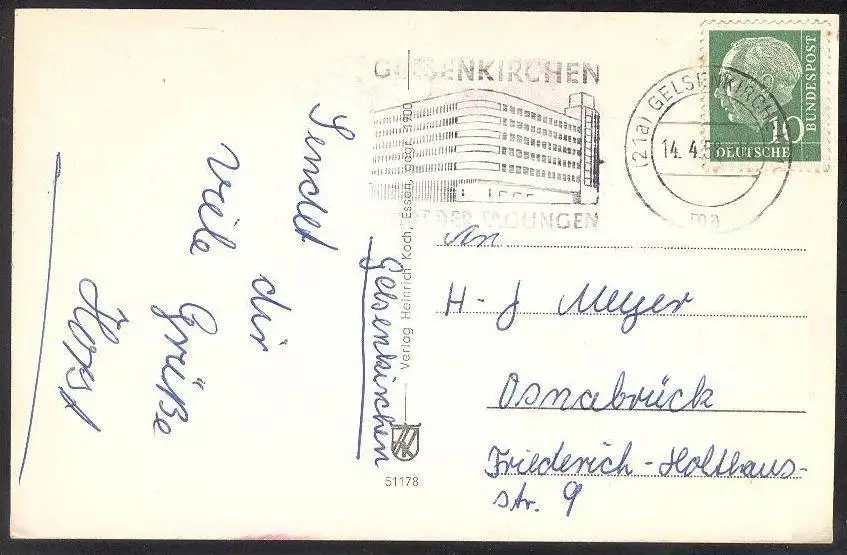 Gelsenkirchen
Sendet
dir
viele Grüße
Horst
Verlag Heinrich Koch, Essen, gegr. 1900
51178
GELSENKIRCHEN
STADT DER TAGUNGEN
(21a) GELSENKIRCHEN
14. 4. 5
ma
10
DEUTSCHE
BUNDESPOST
An
H-J Meyer
Osnabrück
Friederich-Holthaus-
str. 9